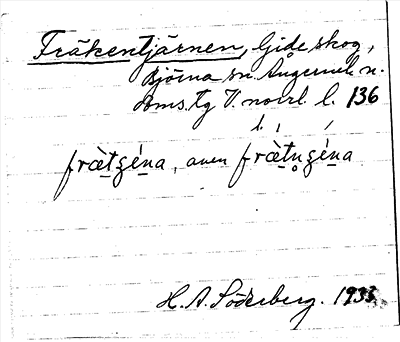 Fräkentjärnen, Gideå skog,
Björna sn. Ångermanl. n.
doms. tg V. norrl. l. 136
frætgéna, även frætngéna
H. A. Söderberg. 1935